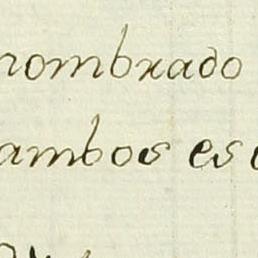 nombrado
ambos es